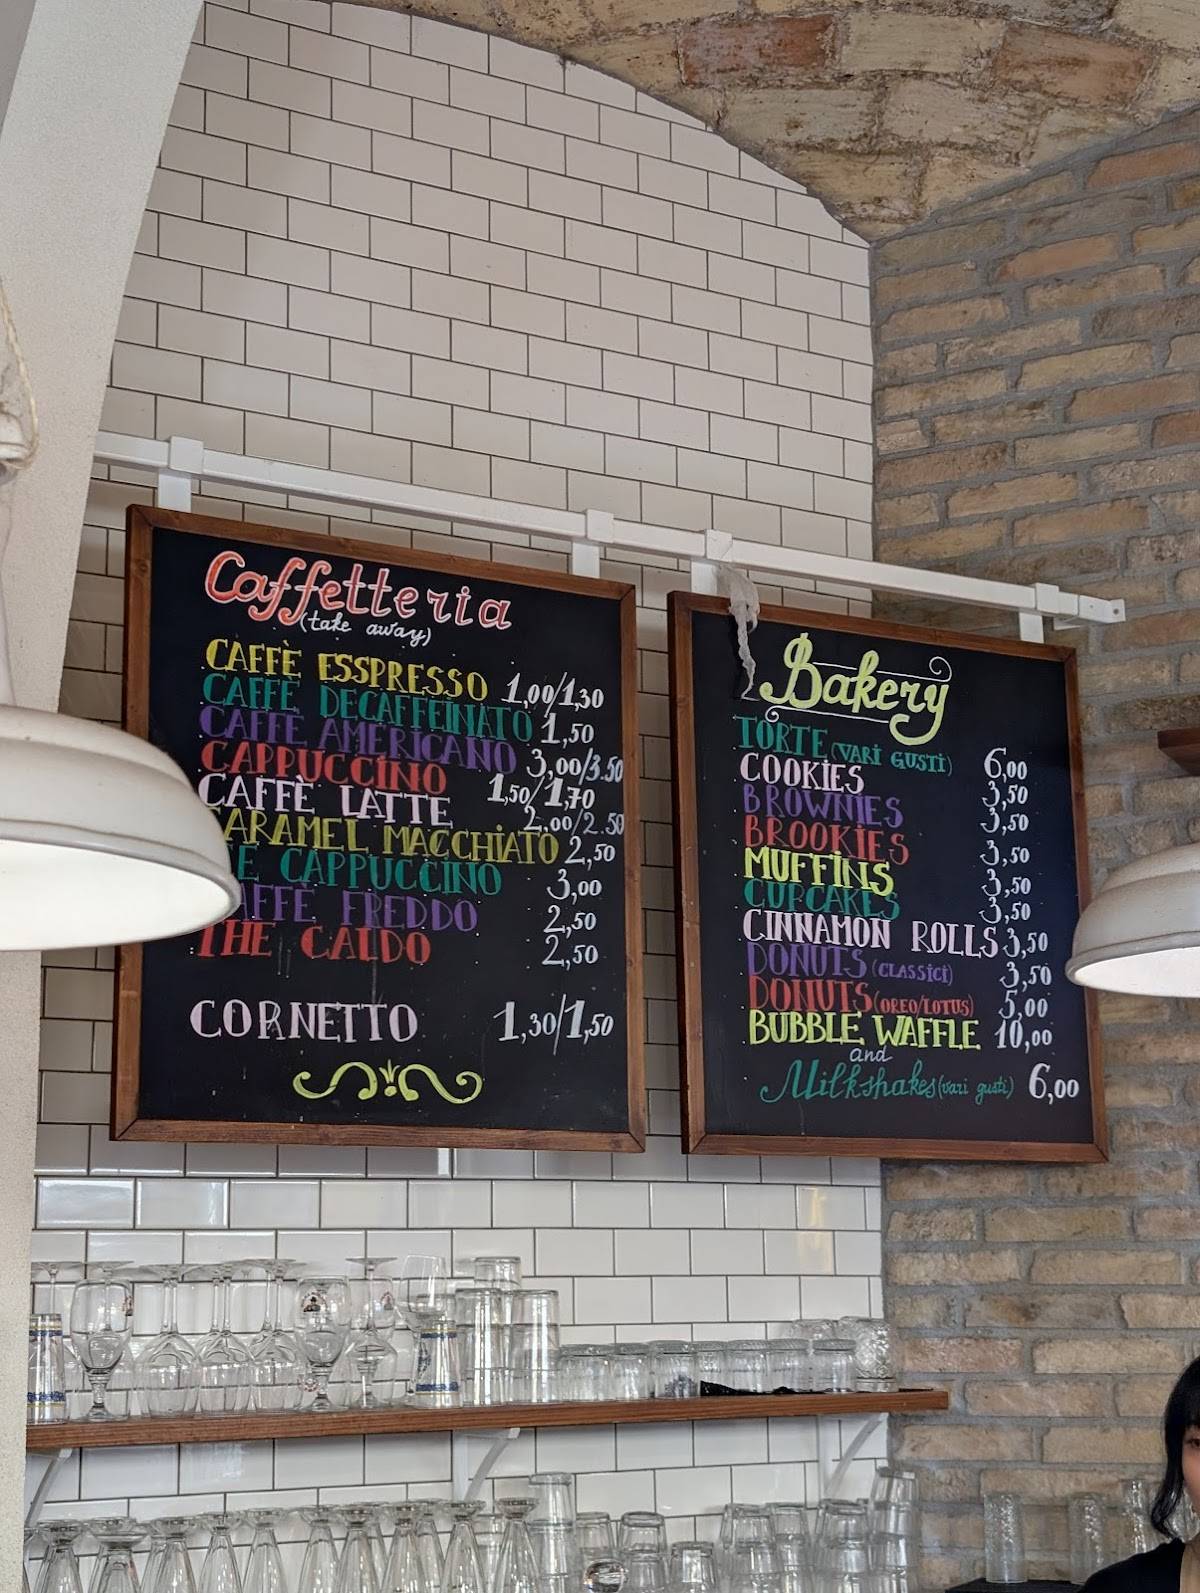 Caffetteria
(take away)
CAFFÈ ESSPRESSO 1,00/1,30
CAFFÈ DECAFFEINATO 1,50
CAFFÈ AMERICANO 3,00/3.50
CAPPUCCINO 1,50/1,70
CAFFÈ LATTE 2,00/2.50
ARAMEL MACCHIATO 2,50
E CAPPUCCINO 3,00
AFFÈ FREDDO 2,50
THE CALDO 2,50
CORNETTO 1,30/1,50
Bakery
TORTE (VARI GUSTI) 6,00
COOKIES 3,50
BROWNIES 3,50
BROOKIES 3,50
MUFFINS 3,50
CUPCAKES 3,50
CINNAMON ROLLS 3,50
DONUTS (CLASSICI) 3,50
DONUTS (OREO/LOTUS) 5,00
BUBBLE WAFFLE 10,00
and
Milkshakes (vari gusti) 6,00